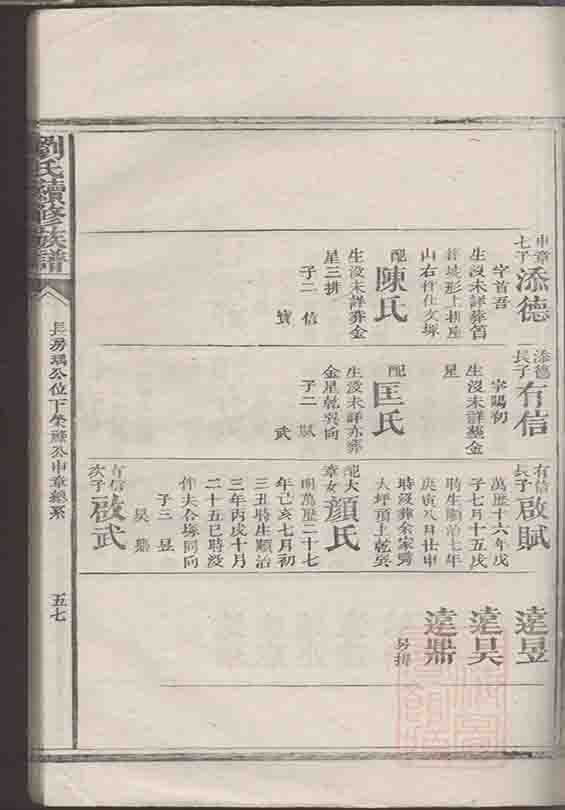 申章
七子
添德
字首吾
生沒未詳葬首
山右
配
陳氏
生沒未詳葬金
星三排
子二 信
寶
添德
長子
有信
字陽初
生沒未詳葬金
星
配
匡氏
生沒未詳亦葬
金星乾巽向
子二 賦
武
有信
長子
啟賦
萬歷十六年戊
子七月十五戌
時生順治七年
庚寅八月廿申
時沒葬余家
大坪頂上乾巽
配大
章女
顏氏
明萬歷二十七
年己亥七月初
三丑時生順治
三年丙戌十月
二十五巳時沒
伴夫合塚同向
子三 昱
昊 鼎
有信
次子
啟武
達昱
達昊
達鼎
另排
劉氏續修族譜
長房 公位下榮 公申章總系
五七